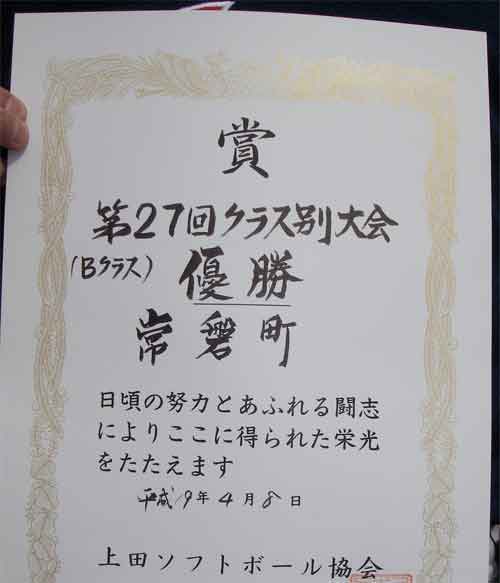 賞
第27回クラス別大会
(Bクラス) 優勝
常磐町
日頃の努力とあふれる闘志
によりここに得られた栄光
をたたえます
平成19年4月8日
上田ソフトボール協会